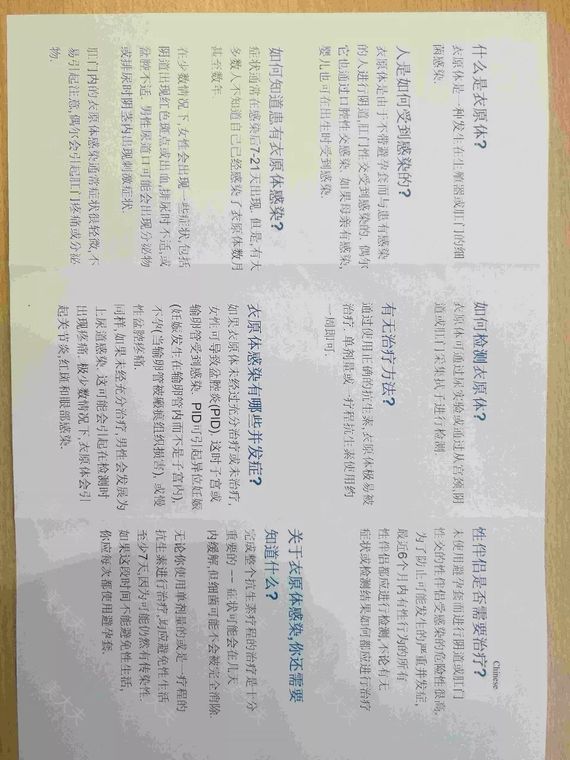 什么是衣原体?
衣原体是一种发生在生殖器或肛门的细
菌感染.
人是如何受到感染的?
衣原体是由于不带避孕套而与患有感染
的人进行阴道,肛门性交受到感染的. 偶尔
它也通过口腔性交感染. 如果母亲有感染,
婴儿也可在出生时受到感染.
如何知道患有衣原体感染?
症状通常在感染后7-21天出现. 但是,有大
多数人不知道自己已经感染了衣原体数月
甚至数年.
在少数情况下,女性会出现一些症状,包括
阴道出现红色斑点或出血,排尿时不适,或
盆腔不适. 男性尿道口可能会出现分泌物
或排尿时阴茎内出现刺激症状.
肛门内的衣原体感染通常症状很轻微,不
易引起注意,偶尔会引起肛门疼痛或分泌
物.
如何检测衣原体?
衣原体可通过尿实验或通过从宫颈,阴
道或肛门采集拭子进行检测
有无治疗方法?
通过使用正确的抗生素,衣原体极易被
治疗. 单剂量或一疗程抗生素使用约
一周即可.
衣原体感染有哪些并发症?
如果衣原体未经过充分治疗或未治疗,
女性可导致盆腔炎(PID), 这时子宫或
输卵管受到感染. PID可引起异位妊娠
(妊娠发生在输卵管内而不是子宫内),
不孕(当输卵管被瘢痕组织损害), 或慢
性盆腔疼痛.
同样,如果未经充分治疗,男性会发展为
上尿道感染. 这可能会引起在检测时
出现疼痛. 极少数情况下,衣原体会引
起关节炎,红斑和眼部感染.
Chinese
性伴侣是否需要治疗?
未使用避孕套而进行阴道或肛门
性交的性伴侣受感染的危险性很高.
为了防止可能发生的严重并发症,
最近6个月内有性行为的所有
性伴侣都应进行检测,不论有无
症状或检测结果如何都应进行治疗
关于衣原体感染,你还需要
知道什么?
完成整个抗生素疗程的治疗是十分
重要的 -- 症状可能会在几天
内缓解,但细菌可能不会被完全消除.
无论你使用单剂量的或是一疗程的
抗生素进行治疗,均应避免性生活
至少7天,因为可能仍然有传染性.
如果这段时间不能避免性生活,
你应每次都使用避孕套.